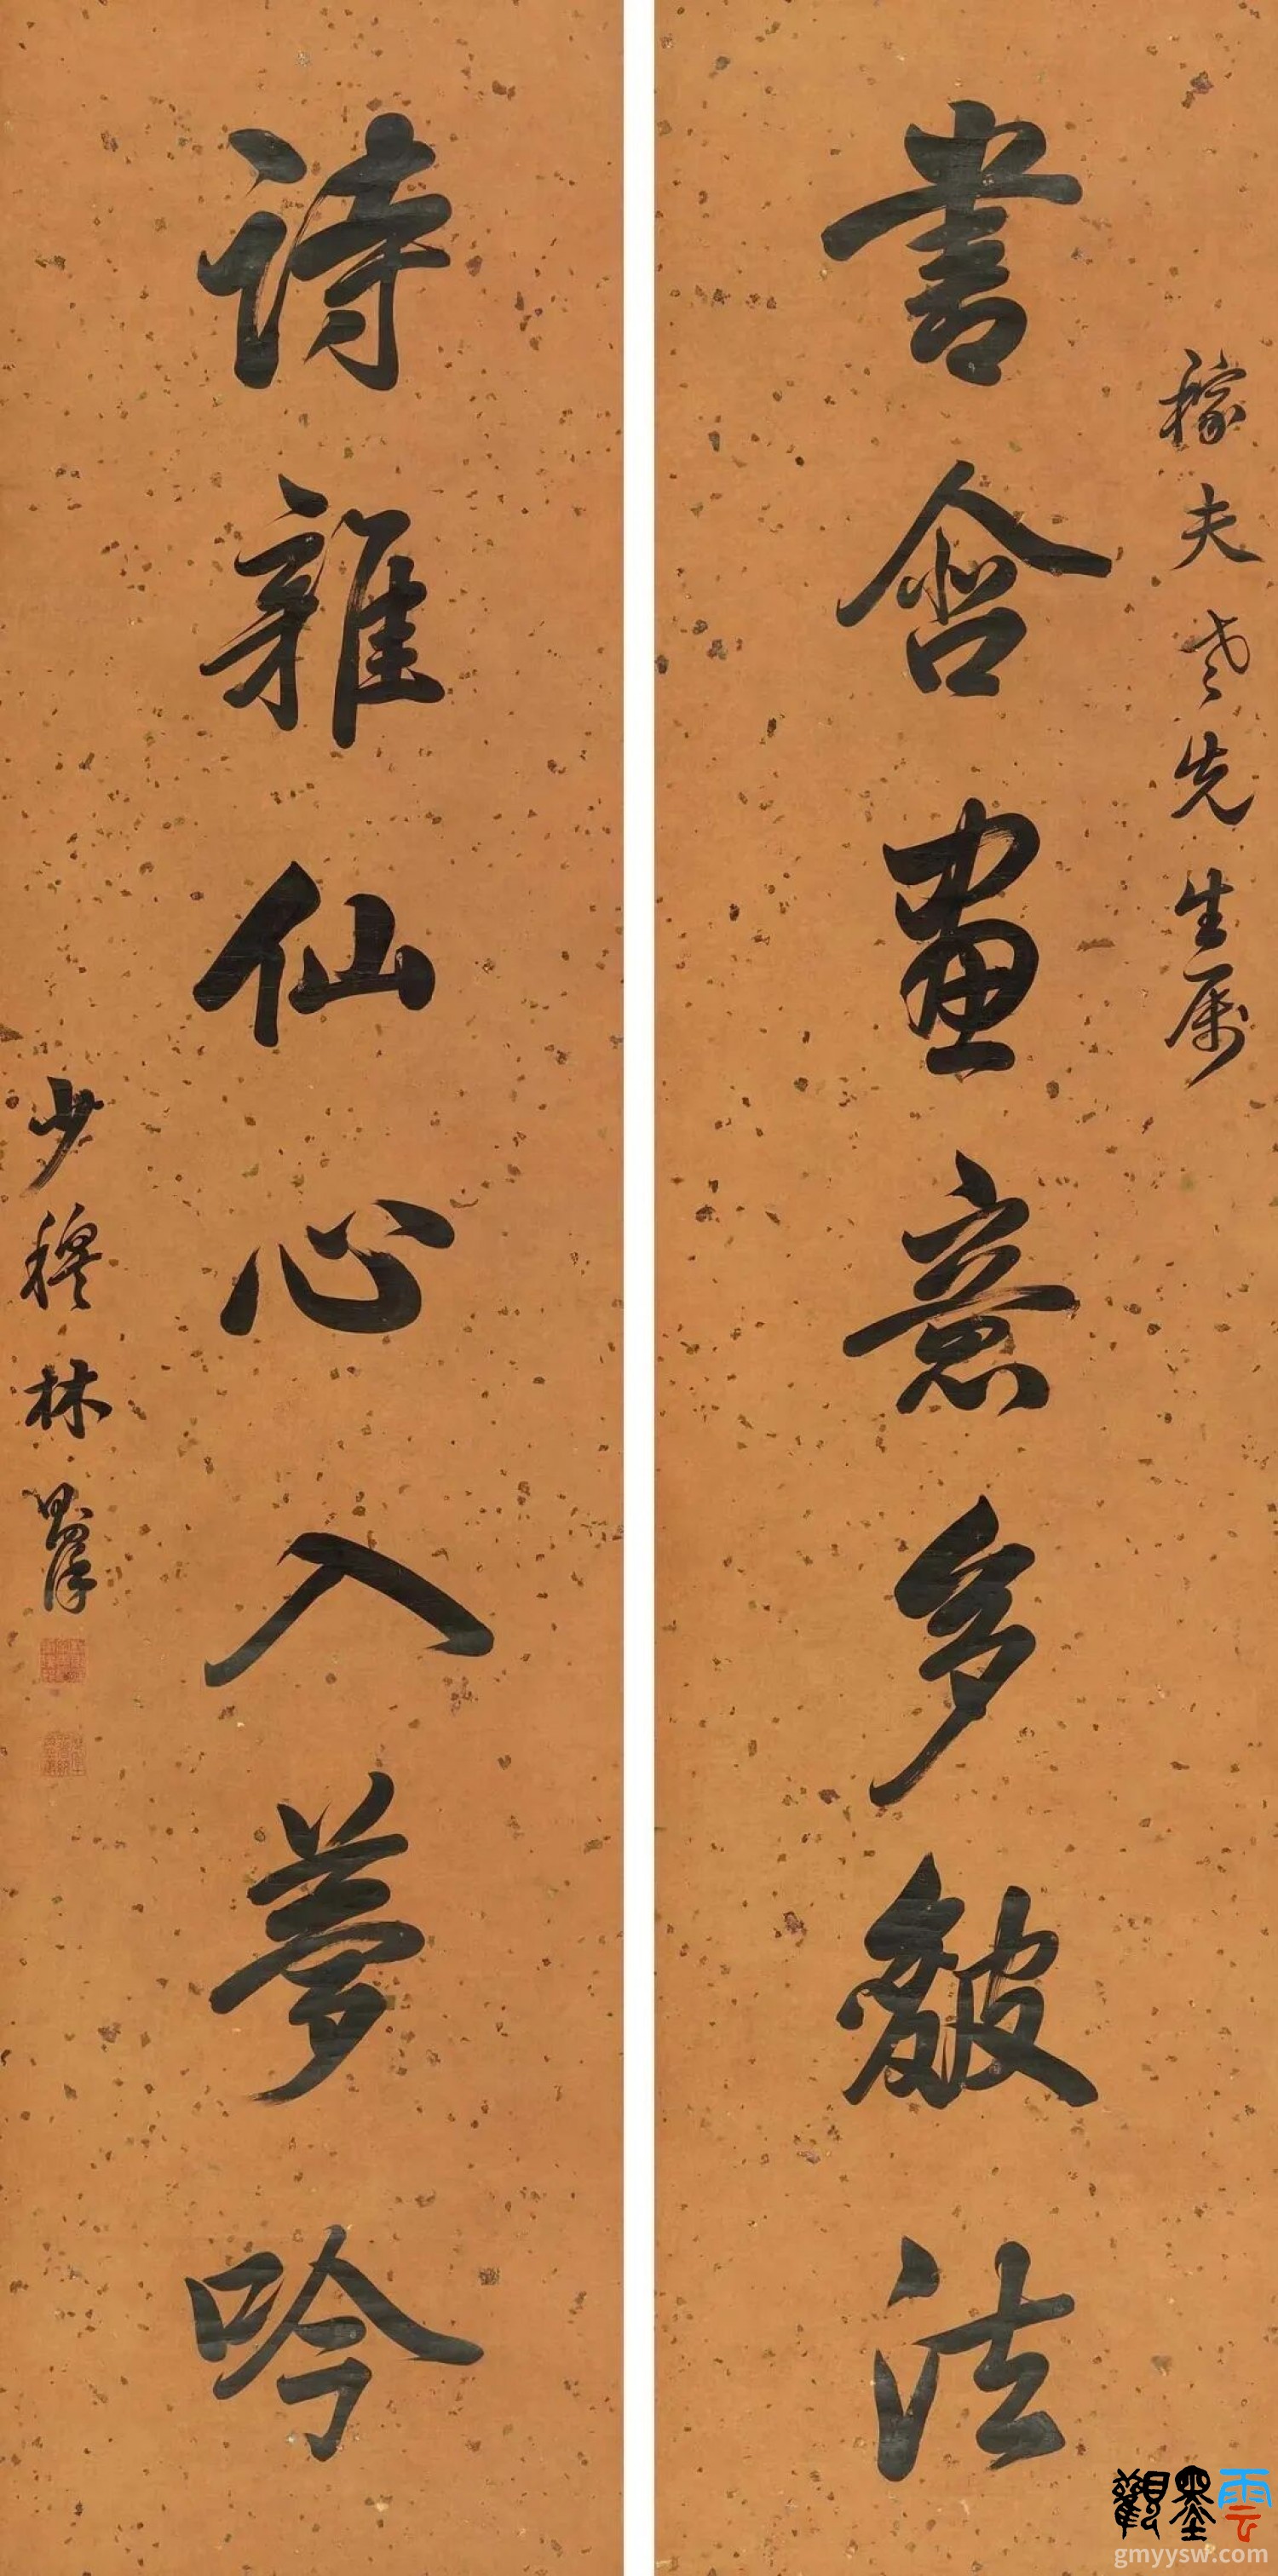 稼夫老先生属
書含畫意多皴法
詩雜仙心入夢吟
少穆林則徐
觀墨雲
gmyysw.com